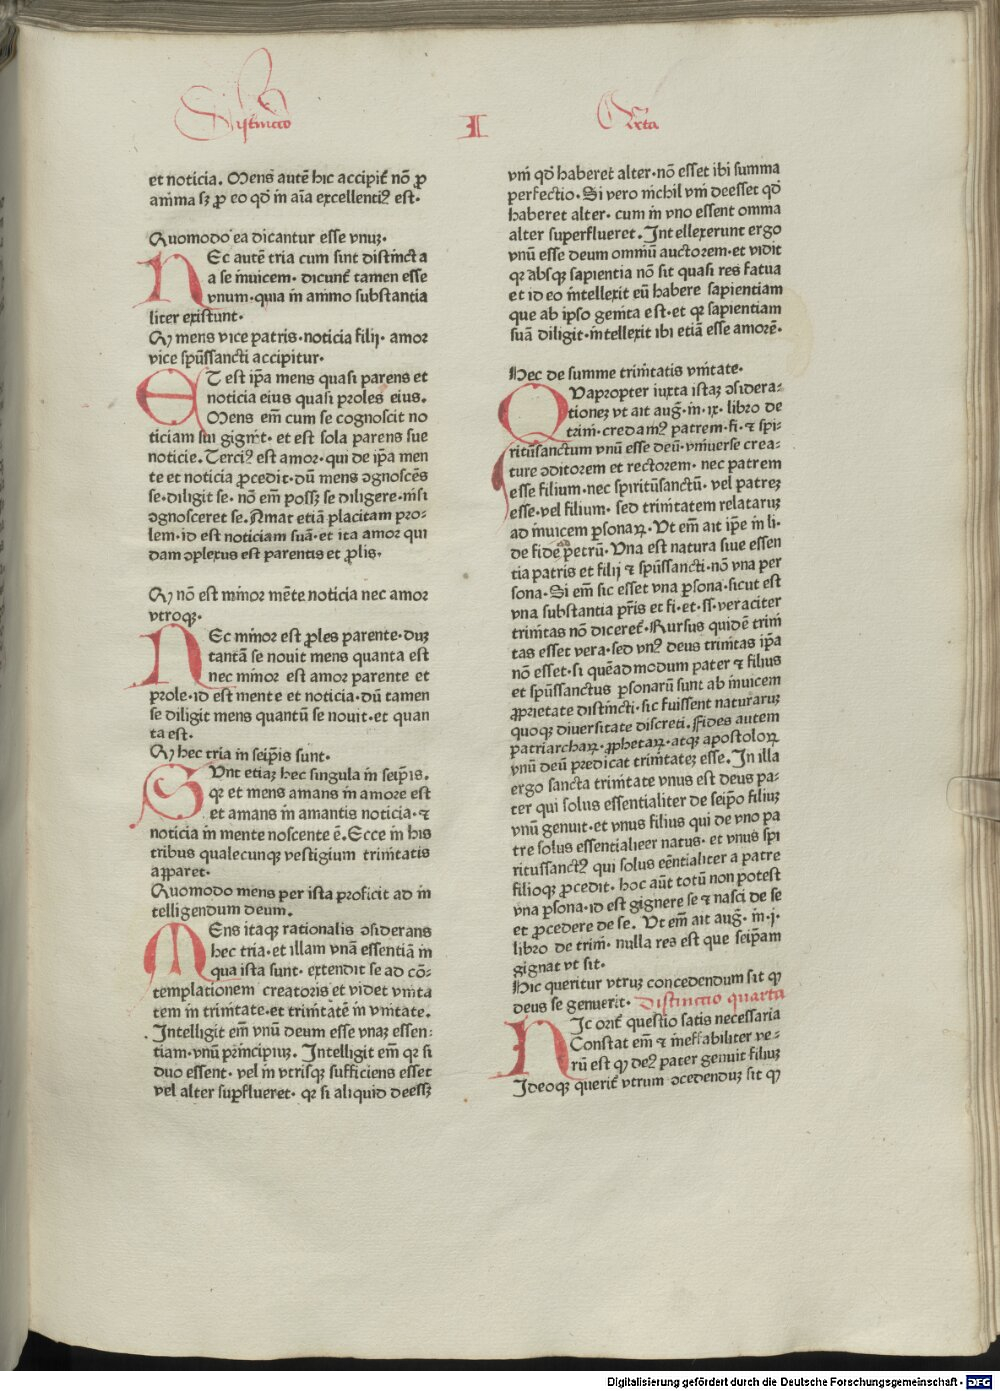 Distinctio I Qrta
et noticia. Mens autē hic accipit̄ nō ꝓ
anima sꝫ ꝓ eo qđ in aīa excellentiꝰ est.
Quomodo ea dicantur esse vnuꝫ.
NEc autē tria cum sint distincta
a se inuicem. dicunt̄ tamen esse
vnum. quia in animo substantia
liter existunt.
Qꝫ mens vice patris. noticia filij. amor
vice spūssancti accipitur.
ET est ip̄a mens quasi parens et
noticia eius quasi proles eius.
Mens em̄ cum se cognoscit no
ticiam sui gignit. et est sola parens sue
noticie. Terciꝰ est amor. qui de ip̄a men
te et noticia ꝓcedit. dū mens ↄgnoscēs
se. diligit se. nō em̄ possꝫ se diligere. nisi
ↄgnosceret se. Amat etiā placitam pro-
lem. id est noticiam suā. et ita amor qui
dam ↄplexus est parentis et ꝓlis.
Qꝫ nō est minor mēte noticia nec amor
vtroqꝫ.
NEc minor est ꝓles parente. duꝫ
tantā se nouit mens quanta est
nec minor est amor parente et
prole. id est mente et noticia. dū tamen
se diligit mens quantū se nouit. et quan
ta est.
Qꝫ hec tria in seip̄is sunt.
SVnt etiaꝫ hec singula in seip̄is.
qꝛ et mens amans in amore est
et amans in amantis noticia. ⁊
noticia in mente noscente ē. Ecce in his
tribus qualecunqꝫ vestigium trinitatis
aꝑparet.
Quomodo mens per ista proficit ad in
telligendum deum.
MEns itaqꝫ rationalis ↄsiderans
hec tria. et illam vnā essentiā in
qua ista sunt. extendit se ad cō-
templationem creatoris et videt vnita
tem in trinitate. et trinitatē in vnitate.
Intelligit em̄ vnū deum esse vnaꝫ essen-
tiam. vnū principiuꝫ. Intelligit em̄ qꝛ si
duo essent. vel in vtrisqꝫ sufficiens esset
vel alter suꝑflueret. qꝛ si aliquid deessꝫ
vni qđ haberet alter. nō esset ibi summa
perfectio. Si vero nichil vni deesset qđ
haberet alter. cum in vno essent omnia
alter superflueret. Intellexerunt ergo
vnū esse deum omniū auctorem. et vidit
qꝛ absqꝫ sapientia nō sit quasi res fatua
et ideo intellexit eū habere sapientiam
que ab ipso genita est. et qꝛ sapientiam
suā diligit. intellexit ibi etiā esse amorē.
Hec de summe trinitatis vnitate.
QVapropter iuxta istaꝫ ↄsidera-
tioneꝫ vt ait auḡ. in. ix. libro de
trini. credamꝰ patrem. fi. ⁊ spi-
ritūsanctum vnū esse deū. vniuerse crea-
ture ↄditorem et rectorem. nec patrem
esse filium. nec spiritūsanctū. vel patreꝫ
esse. vel filium. sed trinitatem relataruꝫ
ad inuicem ꝑsonaꝝ. Vt em̄ ait ip̄e in li.
de fide ad petrū. Vna est natura siue essen
tia patris et filij ⁊ spūssancti. nō vna per
sona. Si em̄ sic esset vna ꝑsona. sicut est
vna substantia pr̄is et fi. et. ss. veraciter
trinitas nō diceret̄. Rursus quidē trini
tas esset vera. sed vnꝰ deus trinitas ip̄a
nō esset. si quēadmodum pater ⁊ filius
et spūssanctus ꝑsonarū sunt ab inuicem
ꝓprietate distincti. sic fuissent naturaruꝫ
quoqꝫ diuersitate discreti. Fides autem
patriarchaꝝ. ꝓphetaꝝ. atqꝫ apostoloꝝ
vnū deū predicat trinitateꝫ esse. In illa
ergo sancta trinitate vnus est deus pa-
ter qui solus essentialiter de seip̄o filiuꝫ
vnū genuit. et vnus filius qui de vno pa
tre solus essentialieer natus. et vnus spi
ritussanctꝰ qui solus eēntialiter a patre
filioqꝫ ꝓcedit. hoc aūt totū non potest
vna ꝑsona. id est gignere se ⁊ nasci de se
et ꝓcedere de se. Vt em̄ ait auḡ. in. j.
libro de trini. nulla res est que seip̄am
gignat vt sit.
Hic queritur vtruꝫ concedendum sit qꝫ
deus se genuerit. Distinctio quarta
HIc orit̄ questio satis necessaria
Constat em̄ ⁊ ineffabiliter ve-
rū est qꝫ deꝰ pater genuit filiuꝫ
Ideoqꝫ querit̄ vtrum ↄcedenduꝫ sit qꝫ
Digitalisierung gefördert durch die Deutsche Forschungsgemeinschaft - DFG